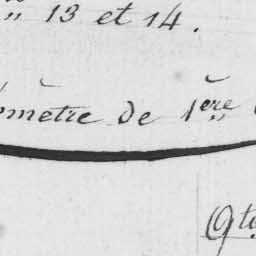 „ 13 et 14.
mètre de 1ère
(Qté